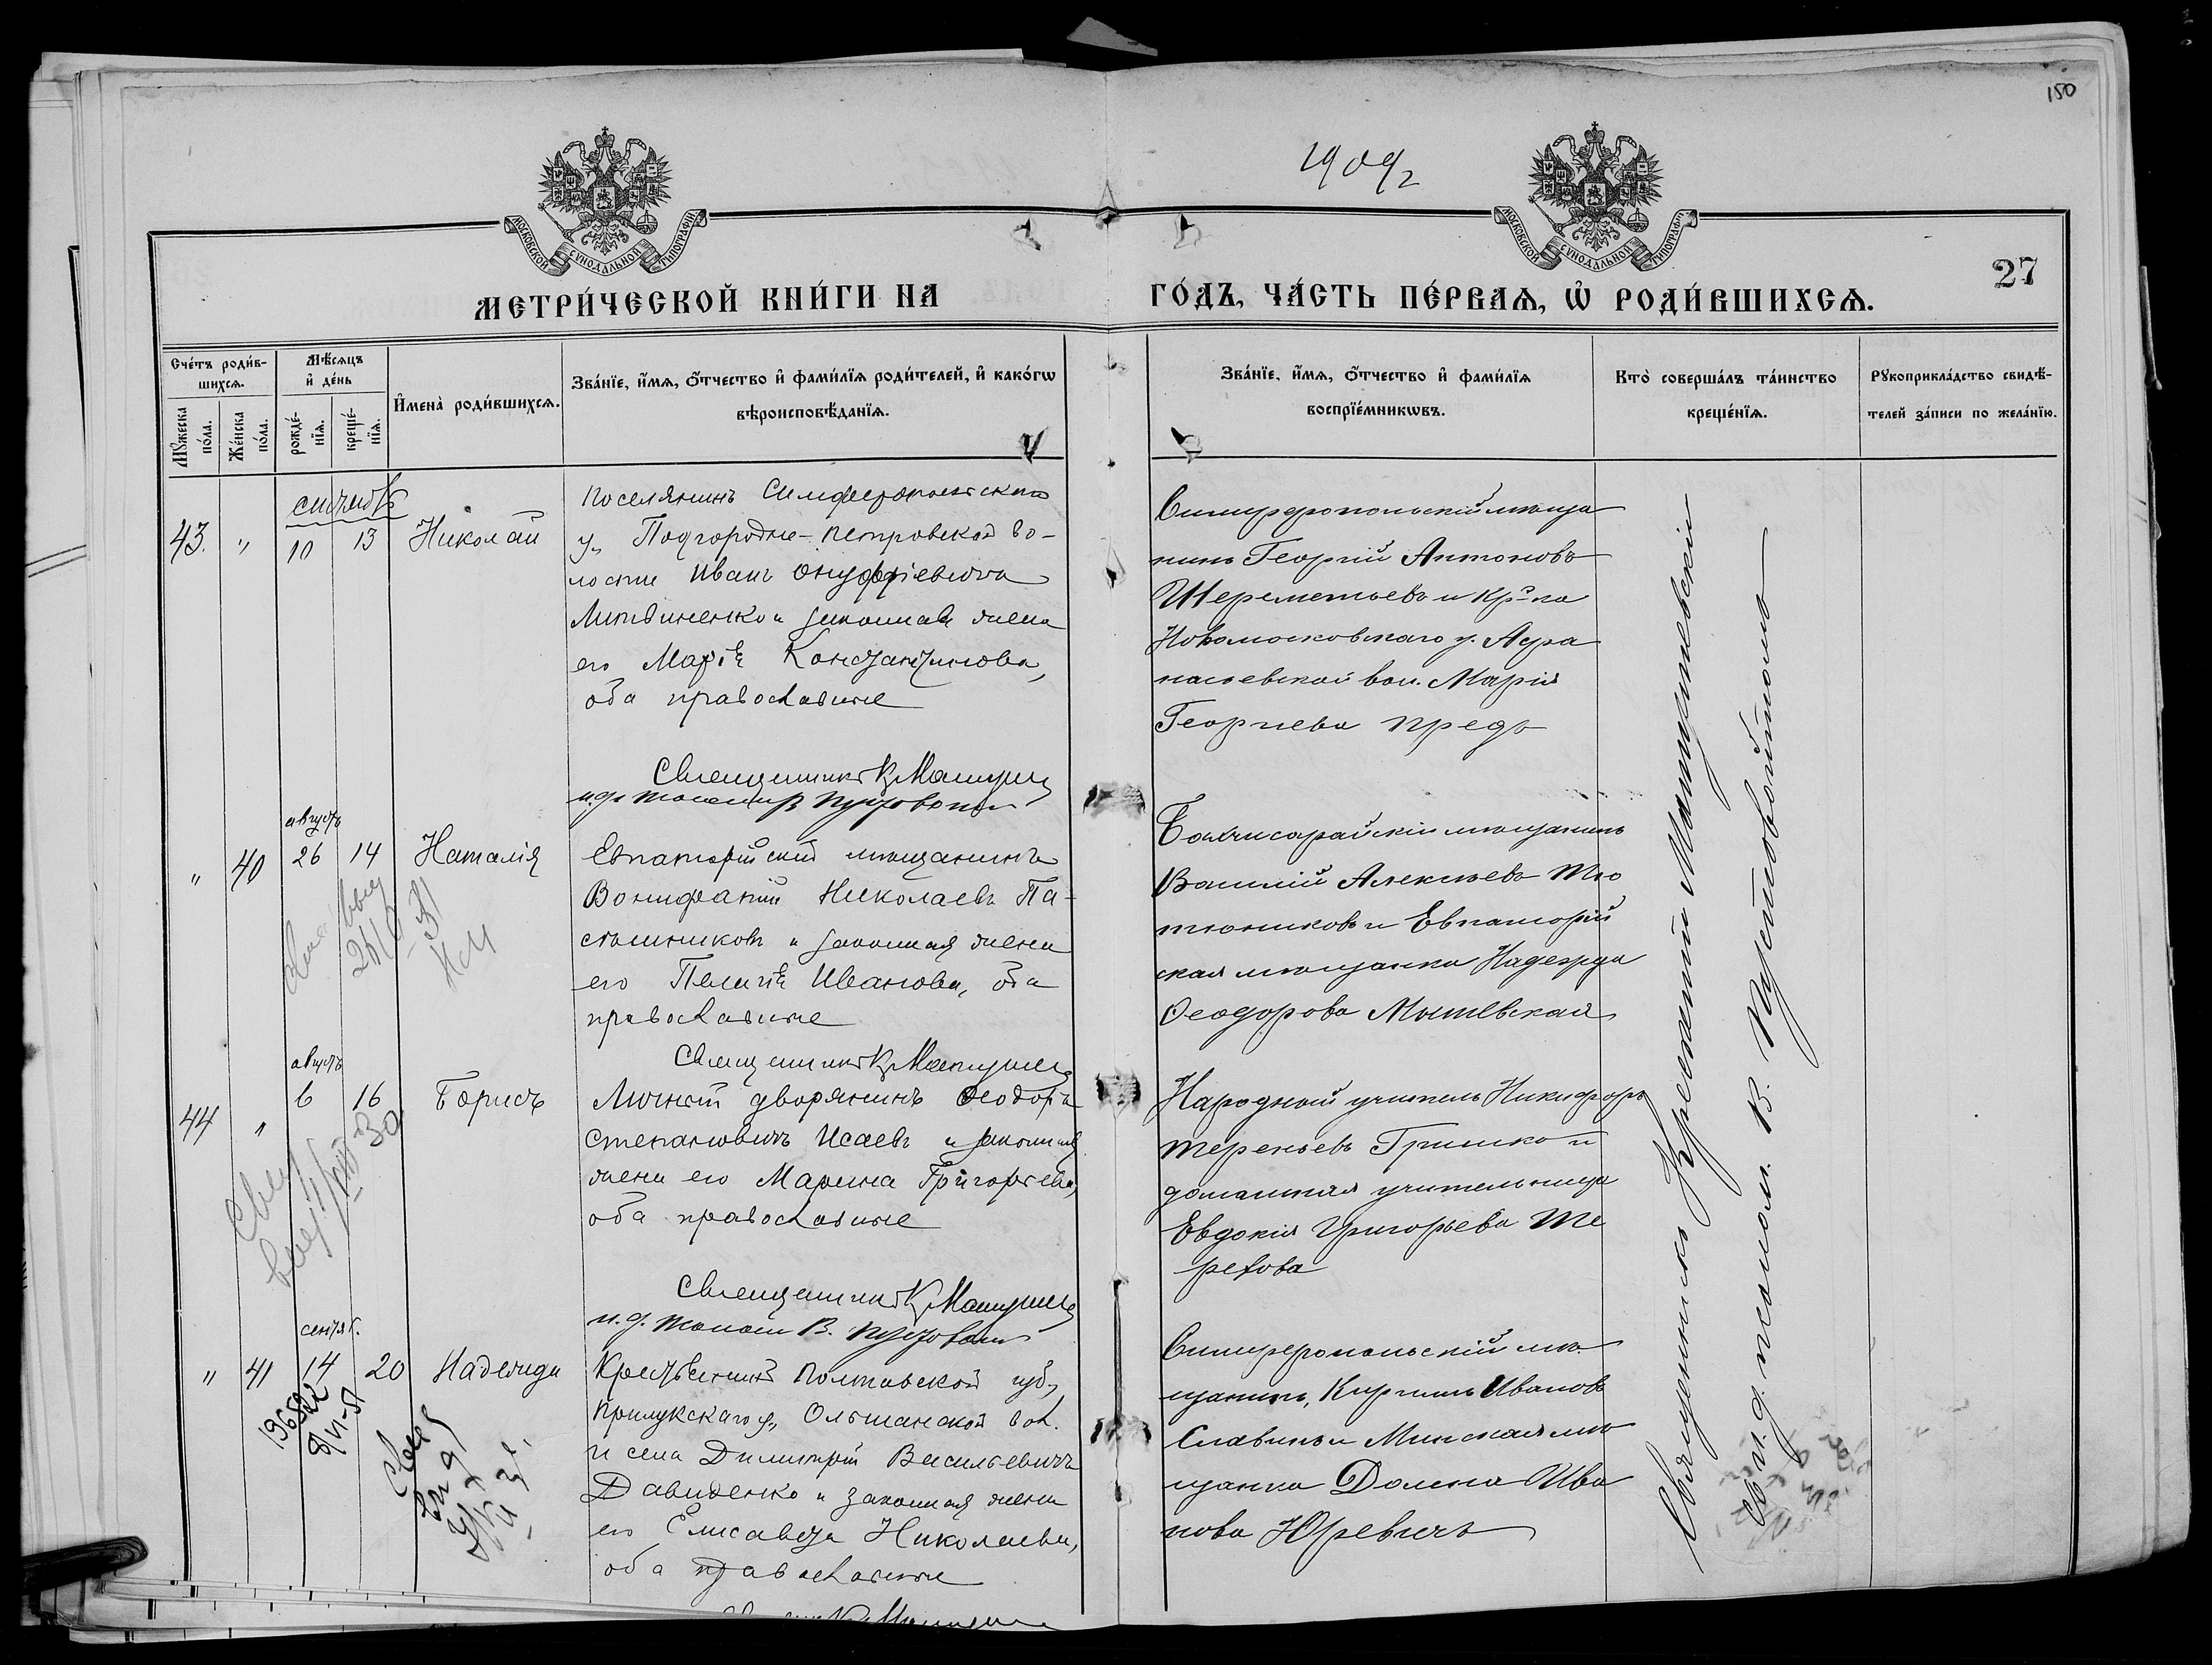 150
1909 г
МОСКОВСКОЙ СѴНОДАЛЬНОЙ ТИПОГРАФІИ
МОСКОВСКОЙ СѴНОДАЛЬНОЙ ТИПОГРАФІИ
27
МЕТРИ́ЧЕСКОЙ КНИ́ГИ НА ГО́ДЪ, ЧА́СТЬ ПЕ́РВАѦ, Ѽ РОДИ́ВШИХСѦ.
Сче́тъ роди́в-
шихсѧ.
Мꙋжеска по́ла.
Же́нска по́ла.
Мѣ́сѧцъ и҆ де́нь
рожде́-
нїѧ.
креще́-
нїѧ.
И҆мена̀ роди́вшихсѧ.
Зва́нїе, и҆́мѧ, ѻ҆́тчество и҆ фами́лїѧ роди́телей, и҆ како́гѡ
вѣроисповѣ́данїѧ.
Зва́нїе, и҆́мѧ, ѻ҆́тчество и҆ фами́лїѧ
воспрїе́мникѡвъ.
Кто̀ соверша́лъ та́инство
креще́нїѧ.
Рꙋкоприкла́дство свидѣ́-
телей за́писи по жела́нїю.
43. " 10 13 Николай
поселянинъ Симферопольскаго
у, Подгородне-Петровской во-
лости Иванъ Онуфріевичъ
Литвиненко и законная жена
его Марія Константинова,
оба православные
Симферопольскій мѣща
нинъ Георгій Антоновъ
Шереметьевъ и кр-ка
Новомосковскаго у. Афа
насьевской вол. Марія
Георгиева Предъ
Священникъ К Мацуше
" 40
августъ
26 14 Наталія
Евпаторійскій мѣщанинъ
Вонифатій Николаевъ Па-
стошниковъ и законная жена
его Пелагія Иванова, оба
православные
Бахчисарайскій мѣщанинъ
Василій Алексѣевъ Тю
тюниковъ и Евпаторій
ская мѣщанка Надежда
Ѳеодорова Мышевская
44 "
августъ
6 16 Борисъ
Личный дворянинъ Ѳеодоръ
Степановичъ Исаевъ и законная
жена его Марина Григорьева,
оба православные
Народный учитель Никифоръ
Терентьевъ Гришко и
домашняя учительница
Евдокія Григорьева Те
рехова
Священникъ К
и. д. псалом В.
" 41
сентяб.
14 20 Надежда
Крестьянинъ Полтавской губ,
Прилукскаго у, Ольшанской вол.
и села Димитрій Васильевичъ
Давиденко и законная жена
его Елисавета Николаева,
оба православные
Симферопольскій мѣ
щанинъ Кириллъ Ивановъ
Славинъ и Минская мѣ
щанка Домна Ива
нова Юревичъ
Священникъ
и. д. псалом. В.